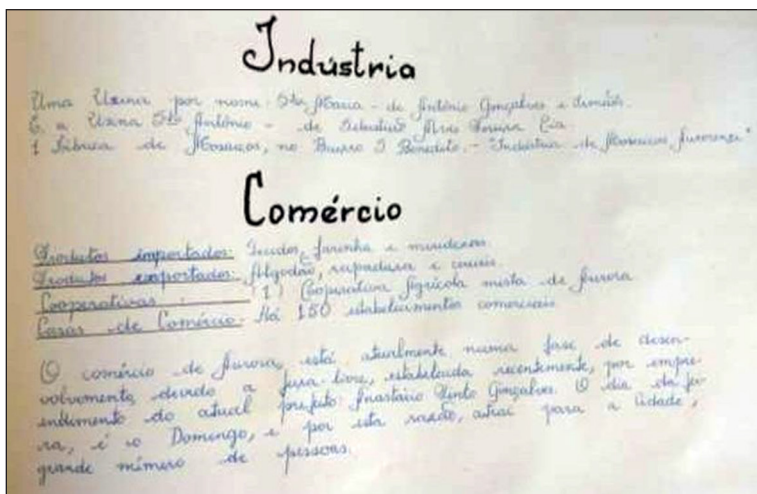 Indústria
Uma Usina por nome Sta Maria - de Antônio Gonçalves e Irmãos.
E a Usina Sto Antônio - de Sebastião Alves Pereira Cia.
1 Fábrica de Mosaicos, no Bairro S. Benedito. - "Indústria de Mosaicos Aurorense"
Comércio
Produtos importados: Tecidos, farinha e miudezas.
Produtos exportados: Algodão, rapadura e couros.
Cooperativas : (1) Cooperativa Agrícola mista de Aurora
Casas de Comércio: Há 150 estabelecimentos comerciais
O comércio de Aurora, está atualmente numa fase de desen-
volvimento, devido a feira-livre, estabelecida recentemente, por empre
endimento do atual prefeito Anastácio Pinto Gonçalves. O dia da fei
ra, é o Domingo, e por esta razão, atrai para a cidade,
grande número de pessoas.